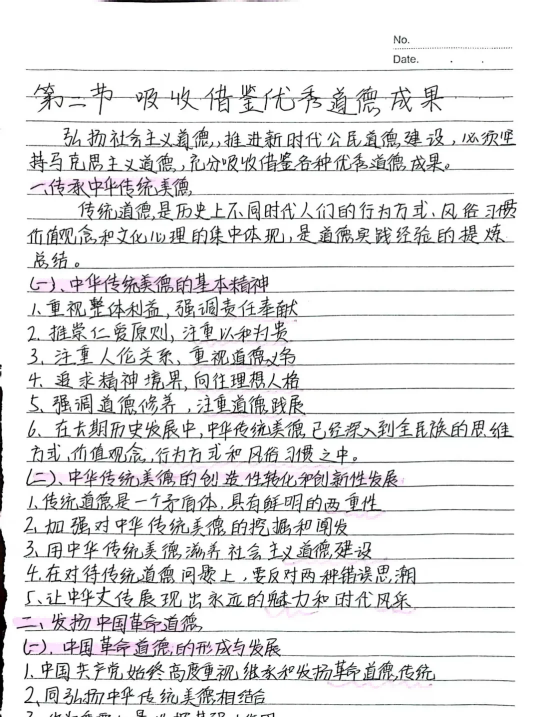 No.
Date. . .
第二节 吸收借鉴优秀道德成果
弘扬社会主义道德,推进新时代公民道德建设,必须坚
持马克思主义道德,充分吸收借鉴各种优秀道德成果。
一、传承中华传统美德
传统道德是历史上不同时代人们的行为方式、风俗习惯
价值观念和文化心理的集中体现,是道德实践经验的提炼
总结。
(一)、中华传统美德的基本精神
1、重视整体利益,强调责任奉献
2、推崇仁爱原则,注重以和为贵
3、注重人伦关系、重视道德义务
4、追求精神境界,向往理想人格
5、强调道德修养,注重道德践履
6、在长期历史发展中,中华传统美德已经深入到全民族的思维
方式,价值观念,行为方式和风俗习惯之中。
(二)、中华传统美德的创造性转化和创新性发展
1、传统道德是一个矛盾体,具有鲜明的两重性
2、加强对中华传统美德的挖掘和阐发
3、用中华传统美德滋养社会主义道德建设
4、在对待传统道德问题上,要反对两种错误思潮
5、让中华文传展现出永远的魅力和时代风采
二、发扬中国革命道德
(一)、中国革命道德的形成与发展
1、中国共产党始终高度重视继承和发扬革命道德传统
2、同弘扬中华传统美德相结合